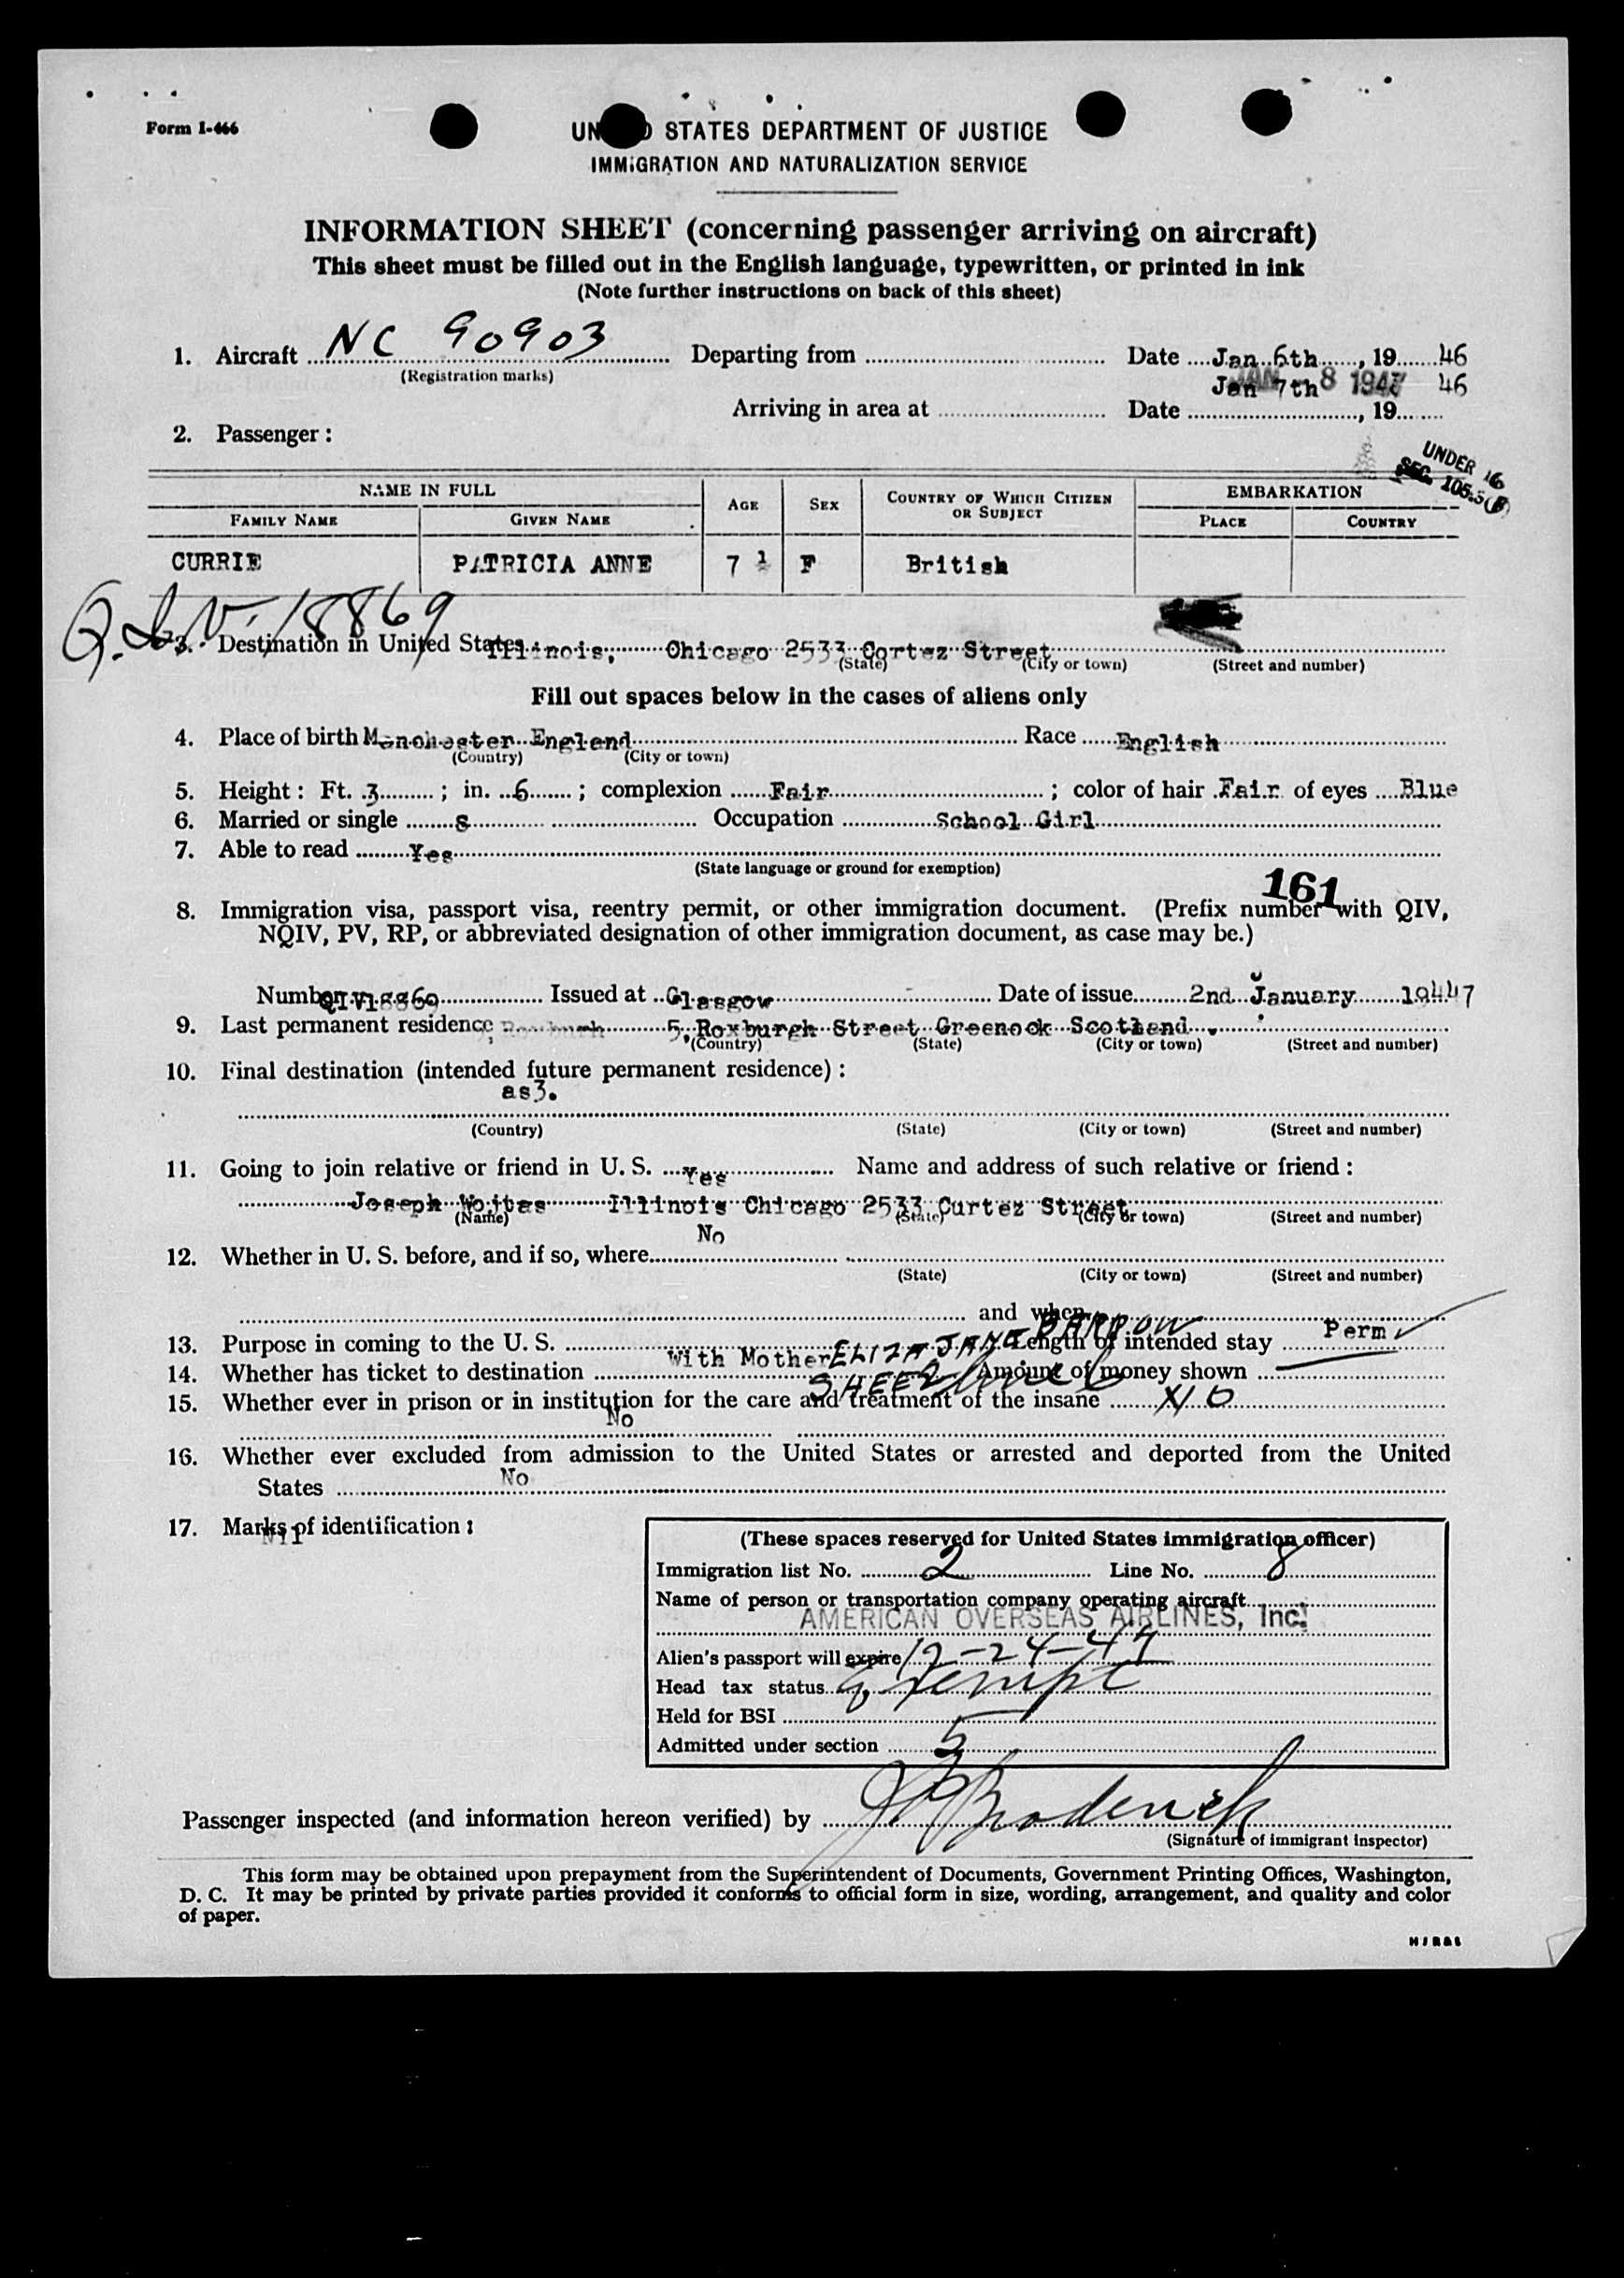 Form I-466
UNITED STATES DEPARTMENT OF JUSTICE
IMMIGRATION AND NATURALIZATION SERVICE
INFORMATION SHEET (concerning passenger arriving on aircraft)
This sheet must be filled out in the English language, typewritten, or printed in ink
(Note further instructions on back of this sheet)
1. Aircraft NC 90903 Departing from Date Jan 6th, 19 46
(Registration marks)
Jan 7th 46
JAN - 8 1947
Arriving in area at Date , 19
2. Passenger:
UNDER 16
SEC. 105.5(B)
NAME IN FULL AGE SEX COUNTRY OF WHICH CITIZEN OR SUBJECT EMBARKATION
FAMILY NAME GIVEN NAME PLACE COUNTRY
CURRIE PATRICIA ANNE 7 1 F British
Q.I.V. 18869
3. Destination in United States Illinois, Chicago 2533 Cortez Street
(State) (City or town) (Street and number)
Fill out spaces below in the cases of aliens only
4. Place of birth Manchester England Race English
(Country) (City or town)
5. Height: Ft. 3 ; in. 6 ; complexion Fair ; color of hair Fair of eyes Blue
6. Married or single s Occupation School Girl
7. Able to read Yes
(State language or ground for exemption)
161
8. Immigration visa, passport visa, reentry permit, or other immigration document. (Prefix number with QIV,
NQIV, PV, RP, or abbreviated designation of other immigration document, as case may be.)
Number QIV18869 Issued at Glasgow Date of issue 2nd January 19447
9. Last permanent residence 5, Roxburgh Street Greenock Scotland.
(Country) (State) (City or town) (Street and number)
10. Final destination (intended future permanent residence):
as3.
(Country) (State) (City or town) (Street and number)
11. Going to join relative or friend in U. S. Yes Name and address of such relative or friend:
Joseph Wojtas Illinois Chicago 2533 Curtez Street
(Name) (State) (City or town) (Street and number)
No
12. Whether in U. S. before, and if so, where
(State) (City or town) (Street and number)
and when
13. Purpose in coming to the U. S. Length of intended stay Perm
With Mother ELIZA JANE BARROW
14. Whether has ticket to destination Amount of money shown
SHEET
15. Whether ever in prison or in institution for the care and treatment of the insane No
No
16. Whether ever excluded from admission to the United States or arrested and deported from the United
States No
17. Marks of identification:
Nil
(These spaces reserved for United States immigration officer)
Immigration list No. 2 Line No. 8
Name of person or transportation company operating aircraft
AMERICAN OVERSEAS AIRLINES, Inc.
Alien's passport will expire 12-24-47
Head tax status Exempt
Held for BSI
Admitted under section 5
Passenger inspected (and information hereon verified) by J Broderick
(Signature of immigrant inspector)
This form may be obtained upon prepayment from the Superintendent of Documents, Government Printing Offices, Washington,
D. C. It may be printed by private parties provided it conforms to official form in size, wording, arrangement, and quality and color
of paper.